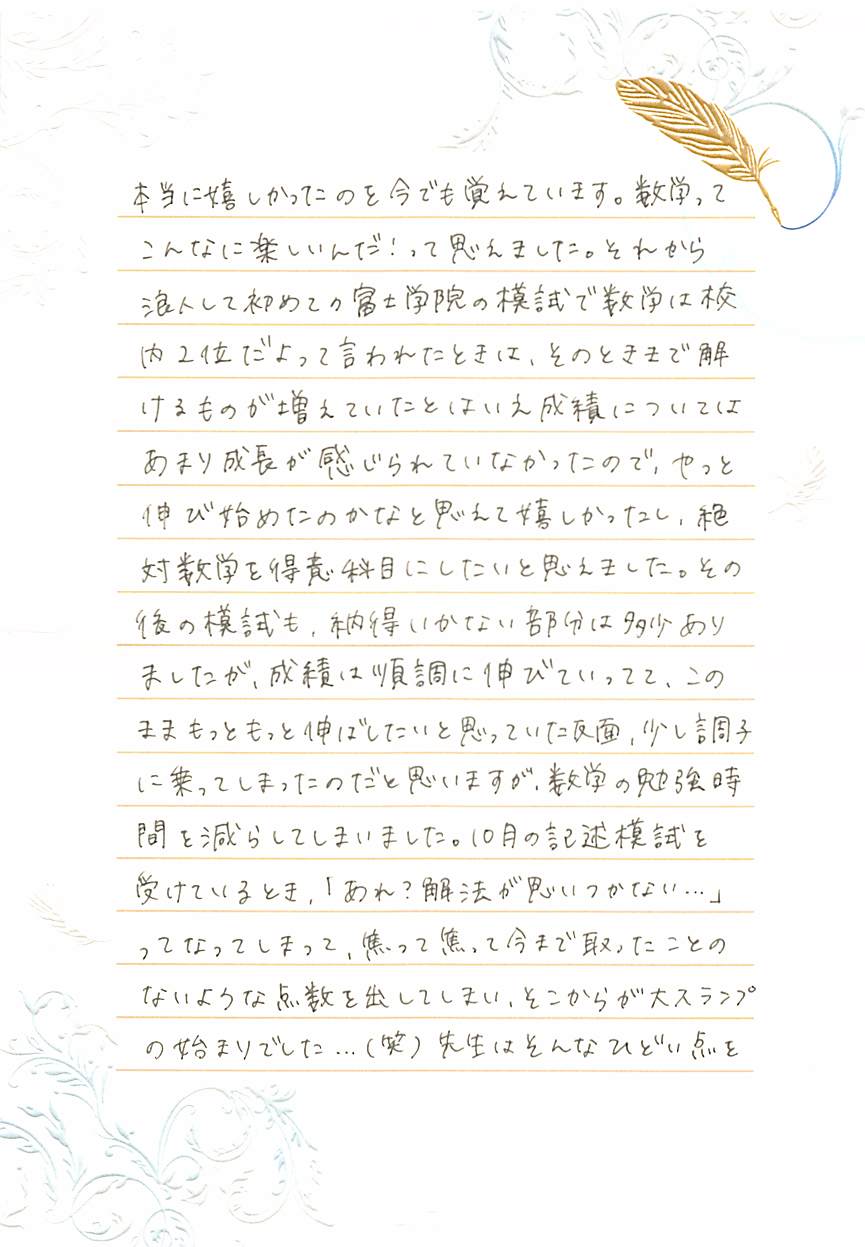 本当に嬉しかったのを今でも覚えています。数学って
こんなに楽しいんだ！って思えました。それから
浪人して初めての富士学院の模試で数学は校
内2位だよって言われたときは、そのときまで解
けるものが増えていたとはいえ成績については
あまり成長が感じられていなかったので、やっと
伸び始めたのかなと思えて嬉しかったし、絶
対数学を得意科目にしたいと思えました。その
後の模試も、納得いかない部分は多少あり
ましたが、成績は順調に伸びていってて、この
ままもっともっと伸ばしたいと思っていた反面、少し調子
に乗ってしまったのだと思いますが、数学の勉強時
間を減らしてしまいました。10月の記述模試を
受けているとき、「あれ？解法が思いつかない…」
ってなってしまって、焦って焦って今まで取ったことの
ないような点数を出してしまい、そこからが大スランプ
の始まりでした…（笑）先生はそんなひどい点を